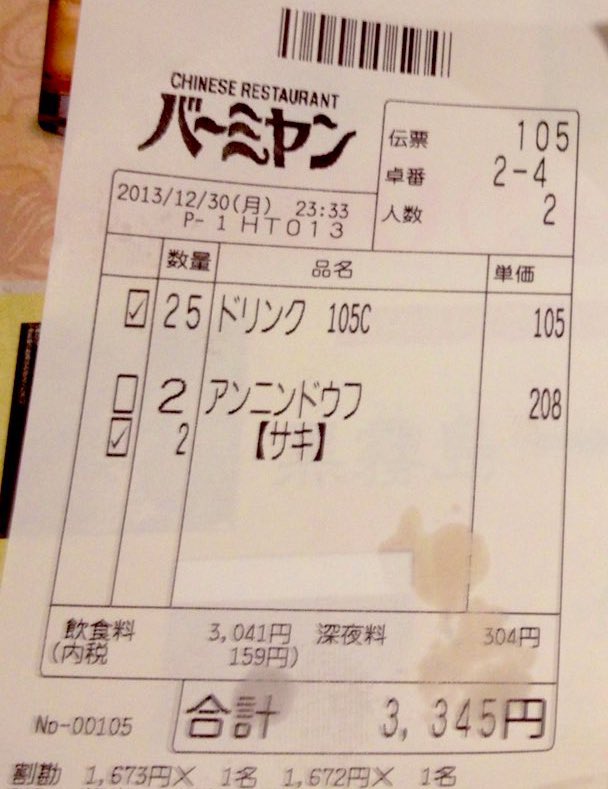 CHINESE RESTAURANT
バーミヤン
伝票 105
卓番 2-4
人数 2
2013/12/30(月) 23:33
P- 1 HT013
数量 品名 単価
☑ 25 ドリンク 105C 105
☐ 2 アンニンドウフ 208
☑ 2 【サキ】
飲食料 3,041円 深夜料 304円
(内税 159円)
合計 3,345円
No-00105
割勘 1,673円× 1名 1,672円× 1名